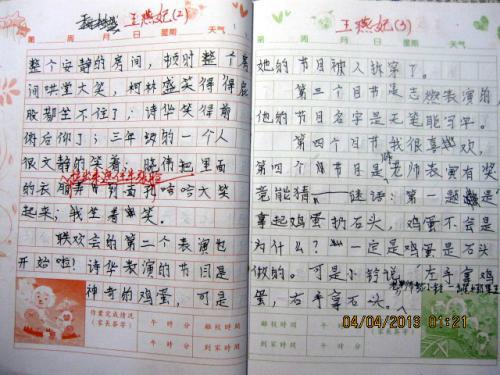 王燕妃(2)
第 周 月 日 星期 天气
整个安静的房间,顿时整个房
间哄堂大笑,柯林盛笑得得屁
股都坐不住了;诗华笑得前
俯后仰了;三年级的一个人
很文静的笑着;
起来;我坐着笑。
联欢会的第二个表演也
开始啦!诗华表演的节目是
神奇的鸡蛋,可是
作业完成情况
(家长签字)
午 时 分
午 时 分
离校时间
到家时间
午 时 分
午 时 分
王燕妃(3)
第 周 月 日 星期 天气
她的节目被人拆穿了。
第三个目节是志燃表演的
他的节目名字是无笔能写字。
第四个目节我很喜欢,
第四个节目是老师表演有奖
竞能猜 谜语:第一题是
拿起鸡蛋扔石头,鸡蛋不会是
为什么? 一定是鸡蛋是石头
做的。可是小铃说,左手拿鸡
蛋,右手拿石头。
作业完成情况
(家长签字)
午 时 分
午 时 分
离校时间
到家时间
04/04/2013 01:21